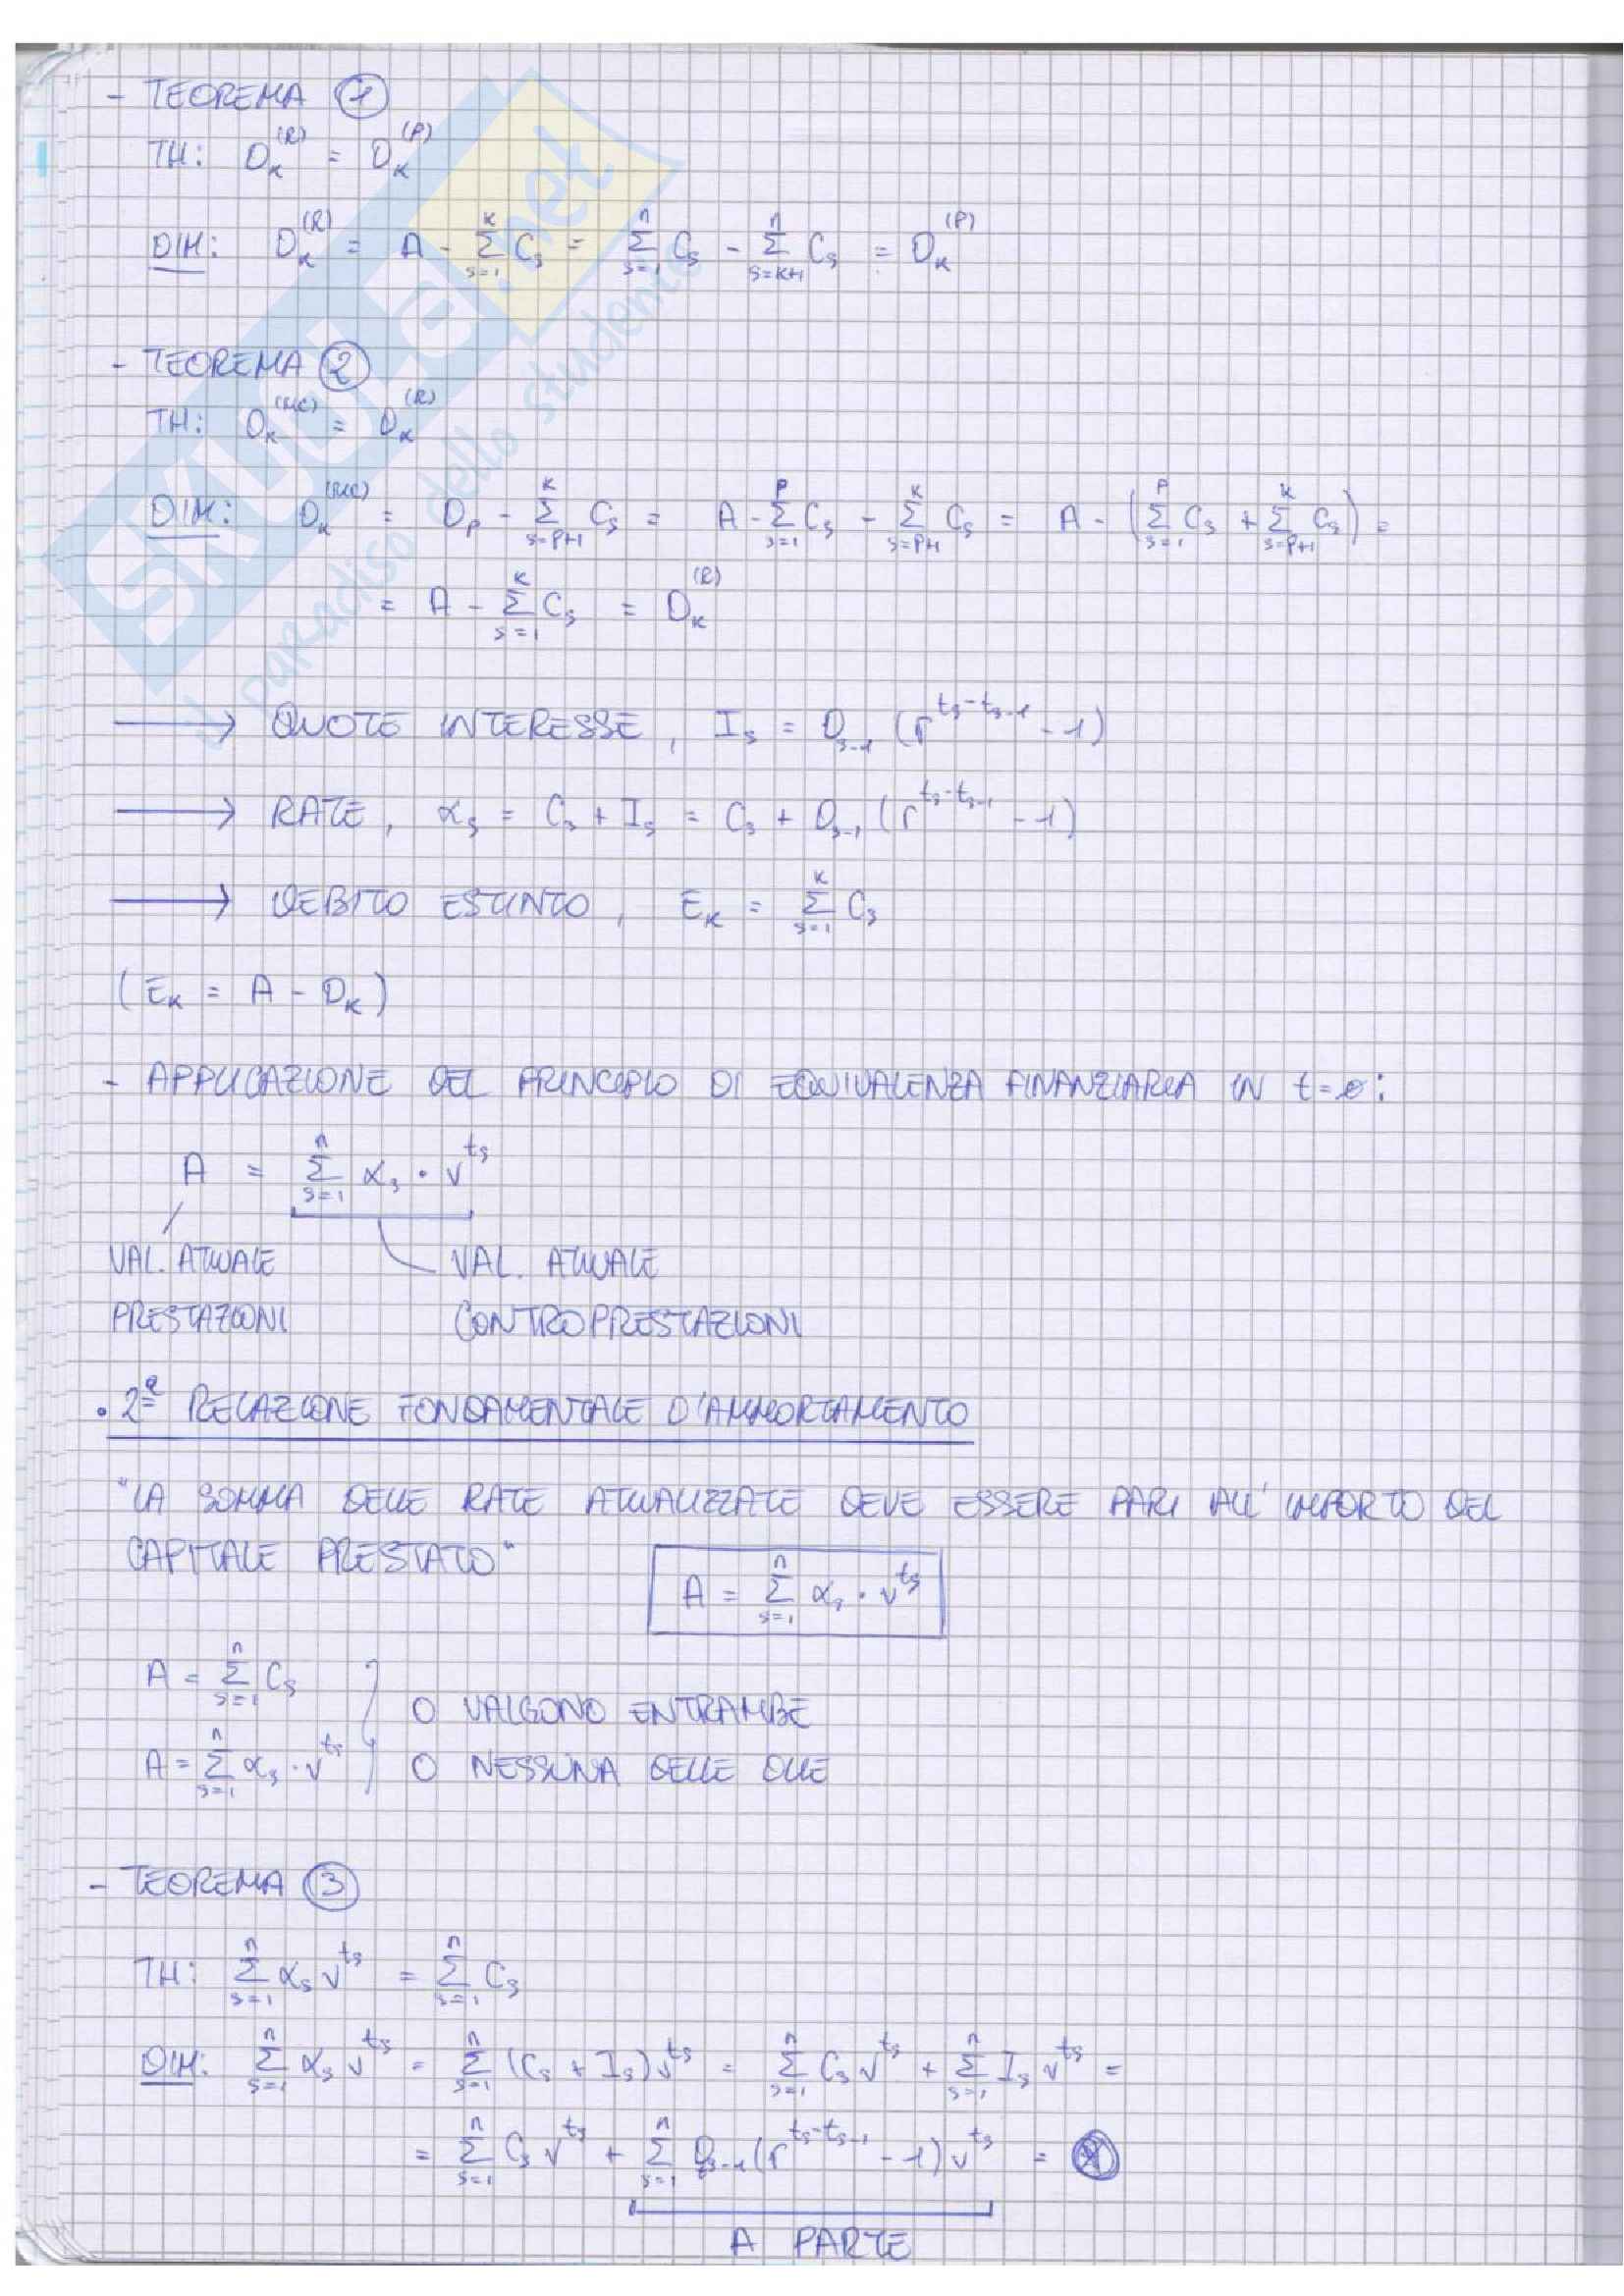 - TEOREMA ①
TH: D_K^(R) = D_K^(P)
DIM: D_K^(R) = A - Σ_{s=1}^{K} C_s = Σ_{s=1}^{n} C_s - Σ_{s=K+1}^{n} C_s = D_K^(P)
- TEOREMA ②
TH: D_K^(RIC) = D_K^(R)
DIM: D_K^(RIC) = D_P - Σ_{s=P+1}^{K} C_s = A - Σ_{s=1}^{P} C_s - Σ_{s=P+1}^{K} C_s = A - (Σ_{s=1}^{P} C_s + Σ_{s=P+1}^{K} C_s) =
= A - Σ_{s=1}^{K} C_s = D_K^(R)
→ QUOTE INTERESSE, I_s = D_{s-1} (r^{t_s - t_{s-1}} - 1)
→ RATE, α_s = C_s + I_s = C_s + D_{s-1} (r^{t_s - t_{s-1}} - 1)
→ DEBITO ESTINTO, E_K = Σ_{s=1}^{K} C_s
(E_K = A - D_K)
- APPLICAZIONE DEL PRINCIPIO DI EQUIVALENZA FINANZIARIA IN t=0:
A = Σ_{s=1}^{n} α_s · v^{t_s}
VAL. ATTUALE PRESTAZIONI
VAL. ATTUALE CONTROPRESTAZIONI
• 2ª RELAZIONE FONDAMENTALE D'AMMORTAMENTO
"LA SOMMA DELLE RATE ATTUALIZZATE DEVE ESSERE PARI ALL'IMPORTO DEL
CAPITALE PRESTATO"
A = Σ_{s=1}^{n} α_s · v^{t_s}
A = Σ_{s=1}^{n} C_s
O VALGONO ENTRAMBE
A = Σ_{s=1}^{n} α_s · v^{t_s}
O NESSUNA DELLE DUE
- TEOREMA ③
TH: Σ_{s=1}^{n} α_s v^{t_s} = Σ_{s=1}^{n} C_s
DIM: Σ_{s=1}^{n} α_s v^{t_s} = Σ_{s=1}^{n} (C_s + I_s) v^{t_s} = Σ_{s=1}^{n} C_s v^{t_s} + Σ_{s=1}^{n} I_s v^{t_s} =
= Σ_{s=1}^{n} C_s v^{t_s} + Σ_{s=1}^{n} D_{s-1} (r^{t_s - t_{s-1}} - 1) v^{t_s} = ⊛
A PARTE
SKUOLA.net
il paradiso dello studente